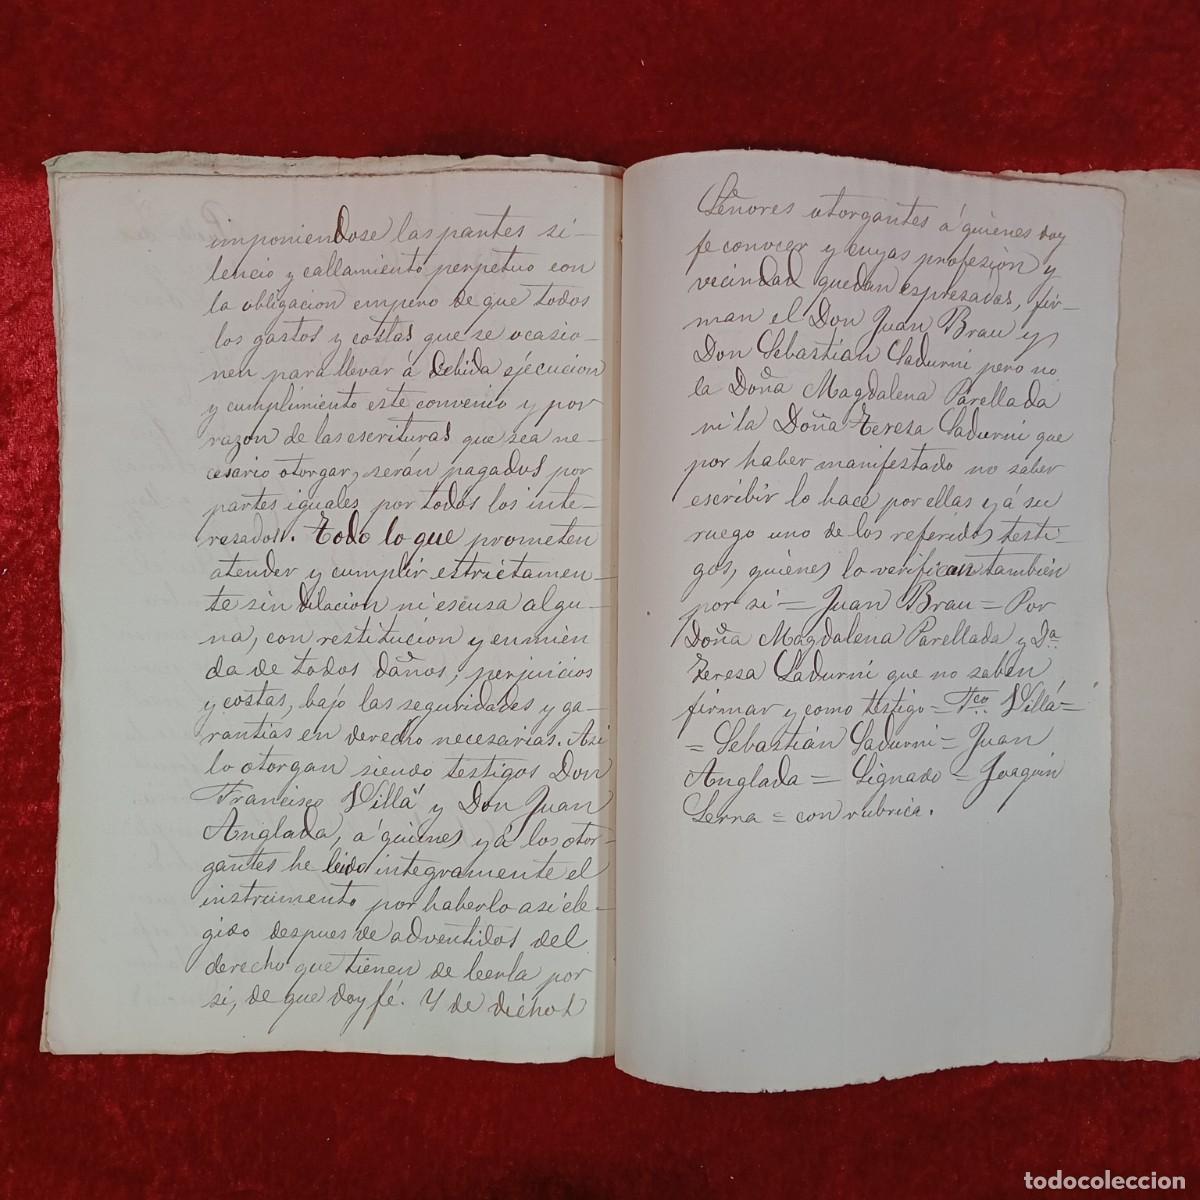 imponiendose las partes si-
lencio y callamiento perpetuo con
la obligacion empero de que todos
los gastos y costas que se ocasio-
nen para llevar á debida ejécucion
y cumplimiento este convenio y por
razon de las escrituras que sea ne-
cesario otorgar, serán pagados por
partes iguales por todos los inte-
resados. Todo lo que prometen
atender y cumplir estrictamen-
te sin dilacion ni escusa algu-
na, con restitucion y enmien
da de todos daños, perjuicios
y costas, bajo las seguridades y ga-
rantias en derecho necesarias. Asi
lo otorgan siendo testigos Don
Francisco Villá y Don Juan
Anglada, á quienes y á los otor-
gantes he leido integramente el
instrumento por haberlo asi ele-
gido despues de advertidos del
derecho que tienen de leerla por
si, de que doy fé. Y de dichos
Señores otorgantes á quienes doy
fe conocer y cuyas profesion y
vecindad quedan espresadas, fir-
man el Don Juan Brau y
Don Sebastian Sadurni pero no
la Doña Magdalena Parellada
ni la Doña Teresa Sadurni que
por haber manifestado no saber
escribir lo hace por ellas y á su
ruego uno de los referidos testi-
gos, quienes lo verifican también
por si = Juan Brau = Por
Doña Magdalena Parellada y Da.
Teresa Sadurni que no saben
firmar y como testigo = Fco. Villá =
= Sebastián Sadurni = Juan
Anglada = Signado = Joaquin
Serra = con rubrica.
todocoleccion